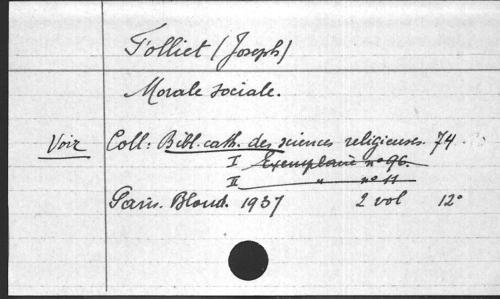 Folliet (Joseph)
Morale sociale.
Voir Coll: Bibl. cath. des sciences religieuses. 74
I Exemplaire n° 96.
II " n° 11
Paris. Bloud. 1937 2 vol 12°